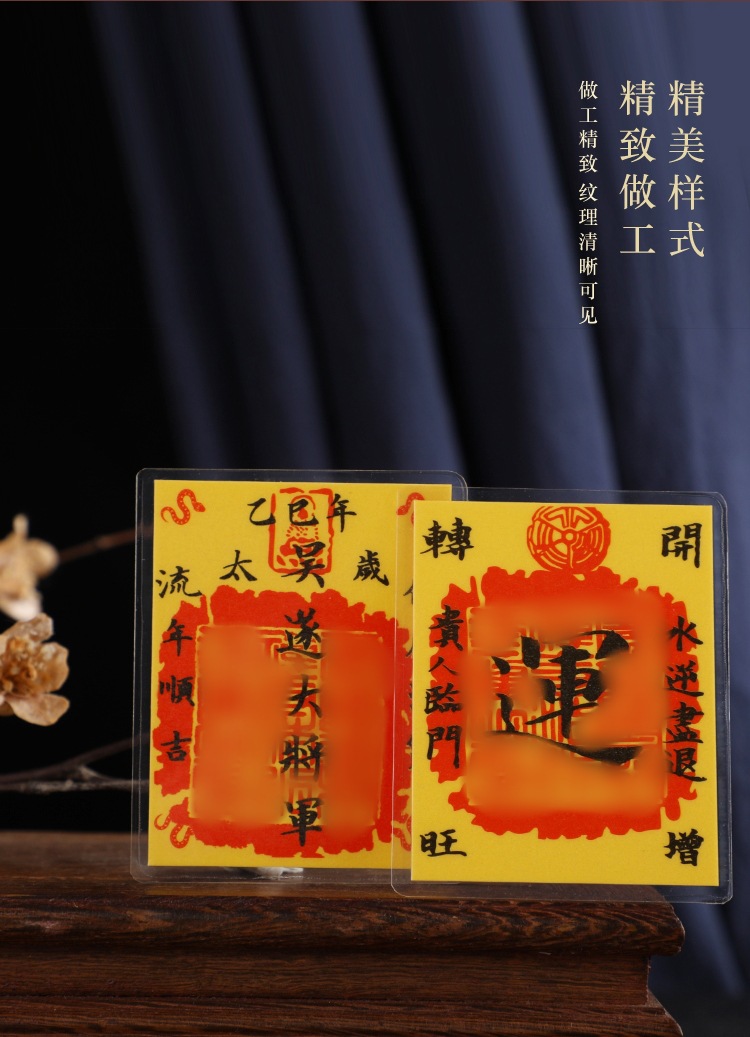 精美样式
精致做工
做工精致 纹理清晰可见
乙巳年
太歲
吴遂大將軍
流年順吉
開運
轉運
增旺
水逆盡退
貴人臨門